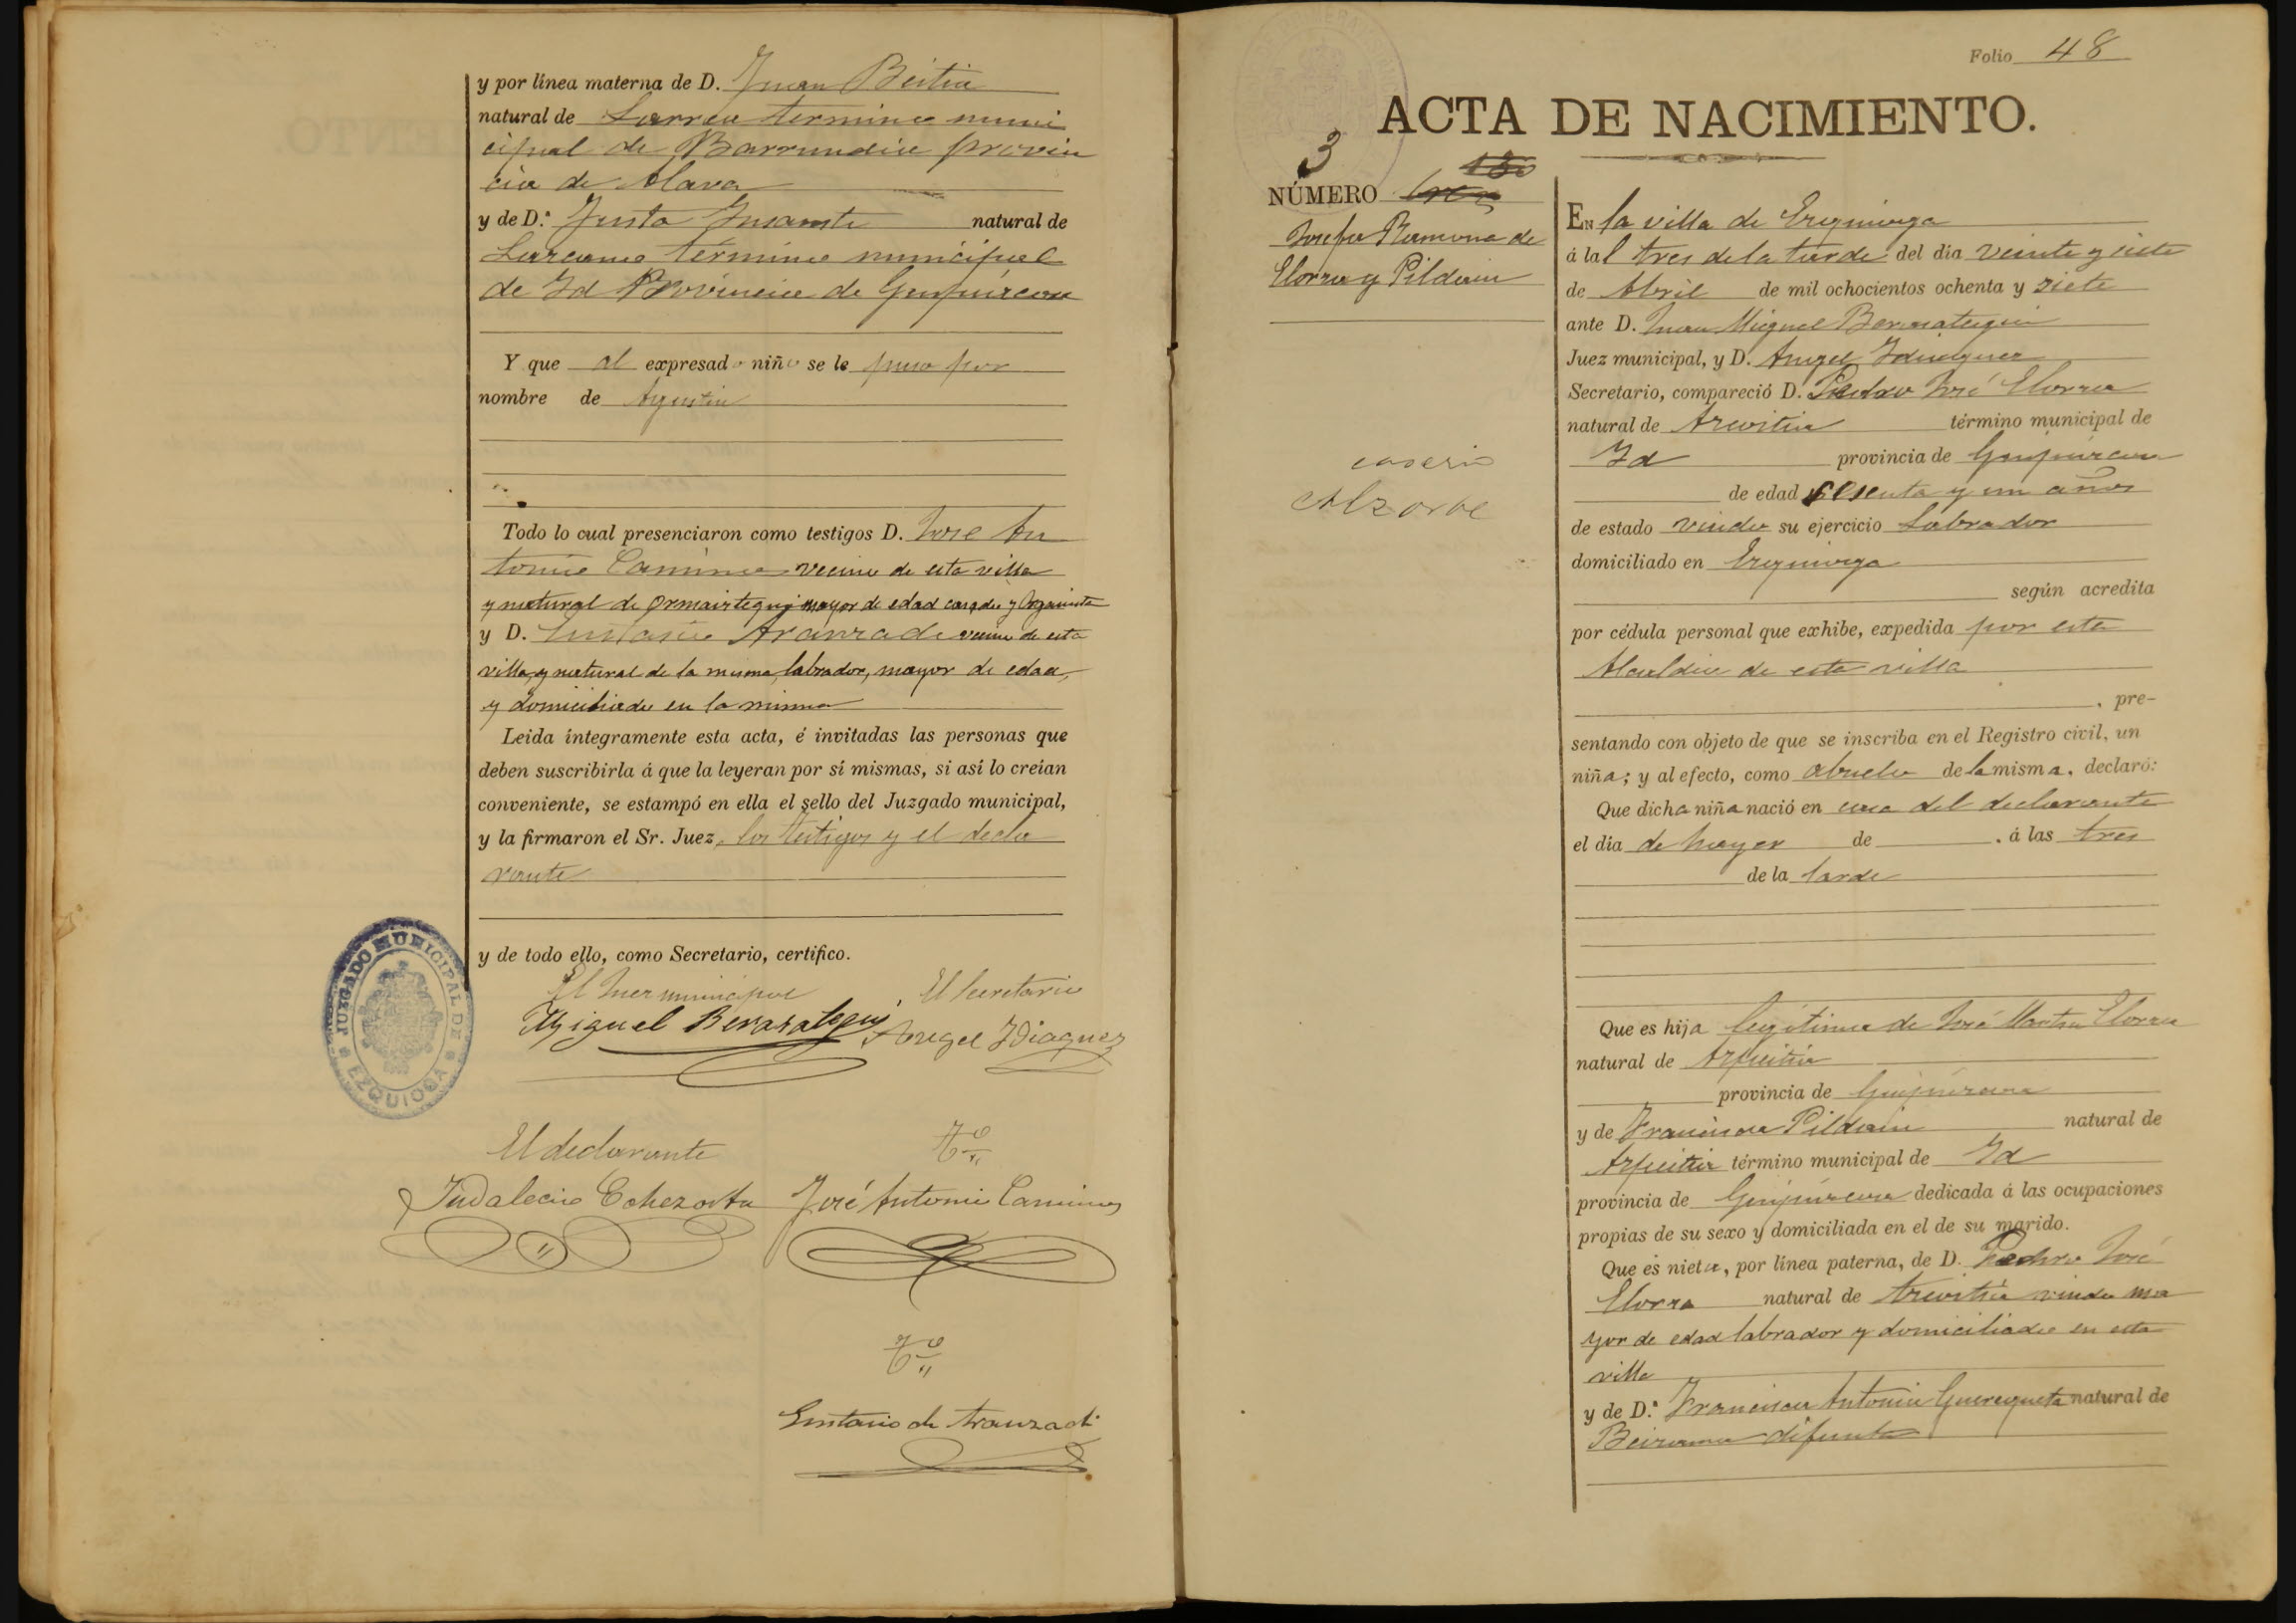 y por línea materna de D. Juan Beitia
natural de Larrea termino muni
cipal de Barrundia provin
cia de Alava
y de D.ª Justa Insausti natural de
Lazcano término municipal
de Id Provincia de Guipúzcoa
Y que al expresado niño se le puso por
nombre de Agustin
Todo lo cual presenciaron como testigos D. José An
tonio Caminos vecino de esta villa
y natural de Ormaiztegui mayor de edad casado y Organista
y D. Eustasio Aranzadi vecino de esta
villa, y natural de la misma, labrador, mayor de edad,
y domiciliado en la misma
Leida íntegramente esta acta, é invitadas las personas que
deben suscribirla á que la leyeran por sí mismas, si así lo creían
conveniente, se estampó en ella el sello del Juzgado municipal,
y la firmaron el Sr. Juez, los testigos y el decla
rante
y de todo ello, como Secretario, certifico.
El Juez municipal El Secretario
Miguel Berasategui Angel Ydiaquez
JUZGADO MUNICIPAL DE EZQUIOGA
El declarante Tº
Indalecio Echezarta José Antonio Caminos
Tº
Eustasio de Aranzadi
Folio 48
ACTA DE NACIMIENTO.
3
NÚMERO
Josefa Ramona de
Elorza y Pildain
caserio
Alzorbe
EN la villa de Ezquioga
á las tres de la tarde del dia veinte y siete
de Abril de mil ochocientos ochenta y siete
ante D. Juan Miguel Berasategui
Juez municipal, y D. Angel Idiaquez
Secretario, compareció D. Pedro José Elorza
natural de Azcoitia término municipal de
Id provincia de Guipúzcoa
de edad sesenta y un años
de estado viudo su ejercicio Labrador
domiciliado en Ezquioga
según acredita
por cédula personal que exhibe, expedida por esta
Alcaldia de esta villa
, pre-
sentando con objeto de que se inscriba en el Registro civil, un
niña; y al efecto, como abuelo de la misma, declaró:
Que dicha niña nació en casa del declarante
el día de hayer de . á las tres
de la tarde
Que es hija legítima de José Martin Elorza
natural de Azpeitia
provincia de Guipúzcoa
y de Francisca Pildain natural de
Azpeitia término municipal de Id
provincia de Guipúzcoa dedicada á las ocupaciones
propias de su sexo y domiciliada en el de su marido.
Que es nieta, por línea paterna, de D. Pedro José
Elorza natural de Azcoitia viudo ma
yor de edad labrador y domiciliado en esta
villa
y de D.ª Francisca Antonia Guerequeta natural de
Beizama difunta